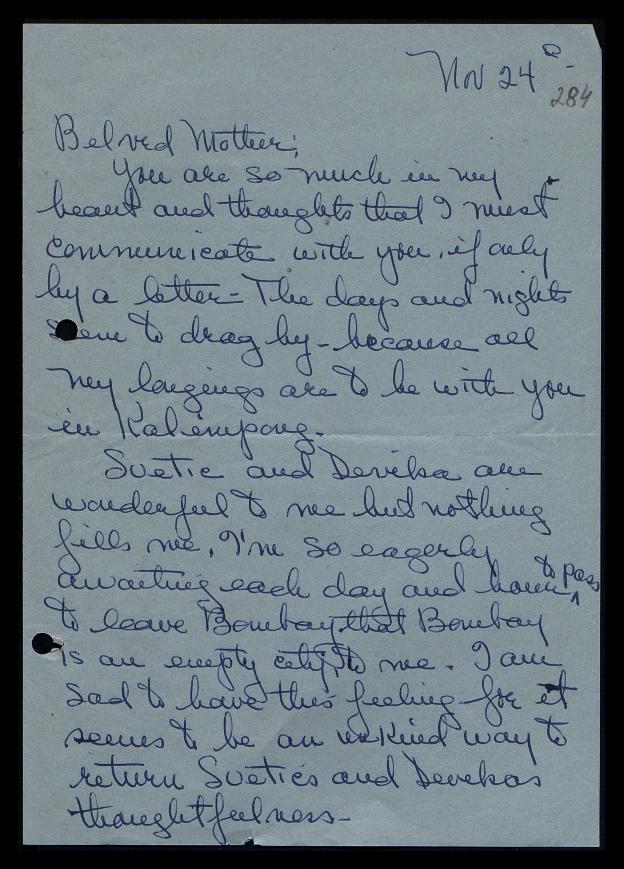 Nov 24
284
Belved Mother;
You are so much in my
heart and thoughts that I must
communicate with you, if only
by a letter - The days and nights
seem to drag by - because all
my longings are to be with you
in Kalimpong.
Svetic and Devika are
wonderful to me but nothing
fills me. I'm so eagerly
awaiting each day and hour to pass
to leave Bombay that Bombay
is an empty city to me. I am
sad to have this feeling for it
seems to be an unkind way to
return Svetics and Devekas
thoughtfulness -